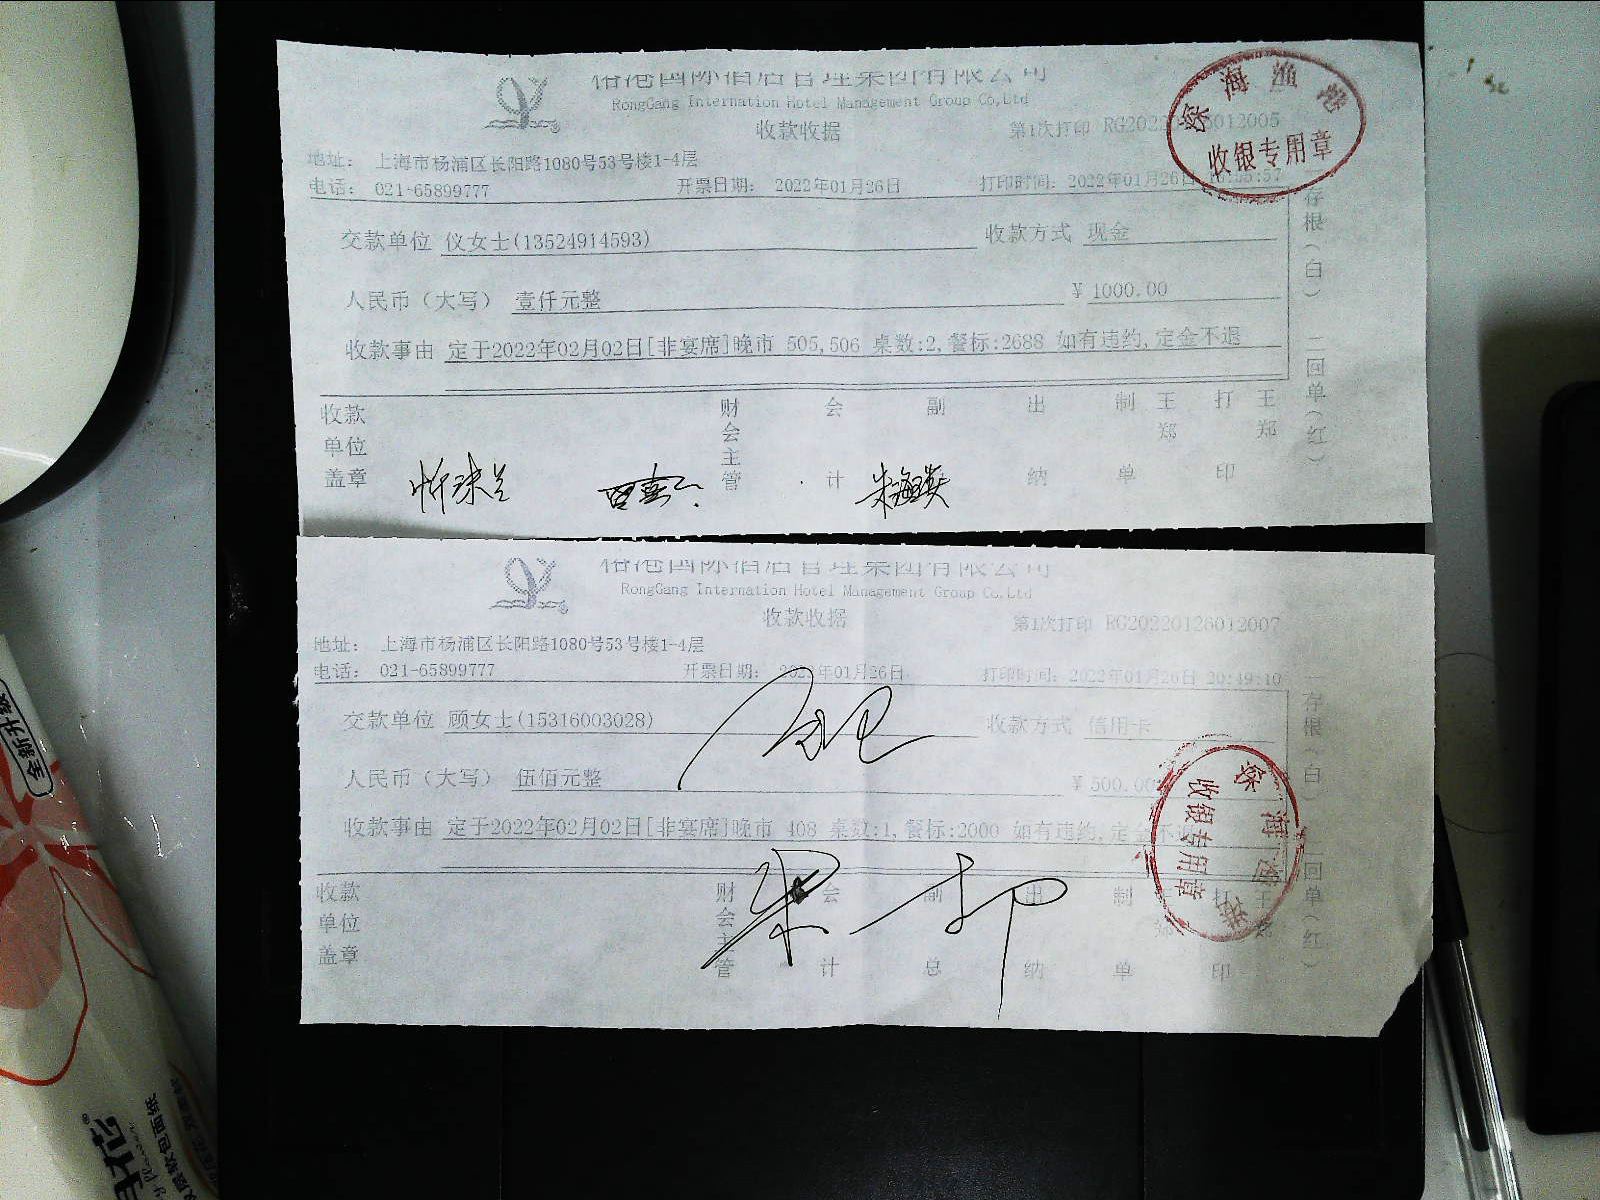 国际酒店管理集团有限公司
RongGang Internation Hotel Management Group Co,Ltd
收款收据
第1次打印
深海渔港
收银专用章
地址： 上海市杨浦区长阳路1080号53号楼1-4层
电话： 021-65899777 开票日期： 2022年01月26日 打印时间：2022年01月26日
交款单位 仪女士(13524914593) 收款方式 现金
人民币（大写） 壹仟元整 ¥ 1000.00
收款事由 定于2022年02月02日[非宴席]晚市 505,506 桌数:2,餐标:2688 如有违约,定金不退
一存根(白) 二回单(红)
收款单位盖章 财会主管 会计 副 出纳 制单 王郑 打印 王郑
国际酒店管理集团有限公司
RongGang Internation Hotel Management Group Co,Ltd
收款收据
第1次打印 RG20220126012007
地址： 上海市杨浦区长阳路1080号53号楼1-4层
电话： 021-65899777 开票日期： 2022年01月26日 打印时间：2022年01月26日 20:49:10
交款单位 顾女士(15316003028) 收款方式 信用卡
人民币（大写） 伍佰元整 ¥ 500.00
收款事由 定于2022年02月02日[非宴席]晚市 408 桌数:1,餐标:2000 如有违约,定金不
深海渔港
收银专用章
存根(白) 回单(红)
收款单位盖章 财会主管 会计 副总 出纳 制单 打印
全新升级